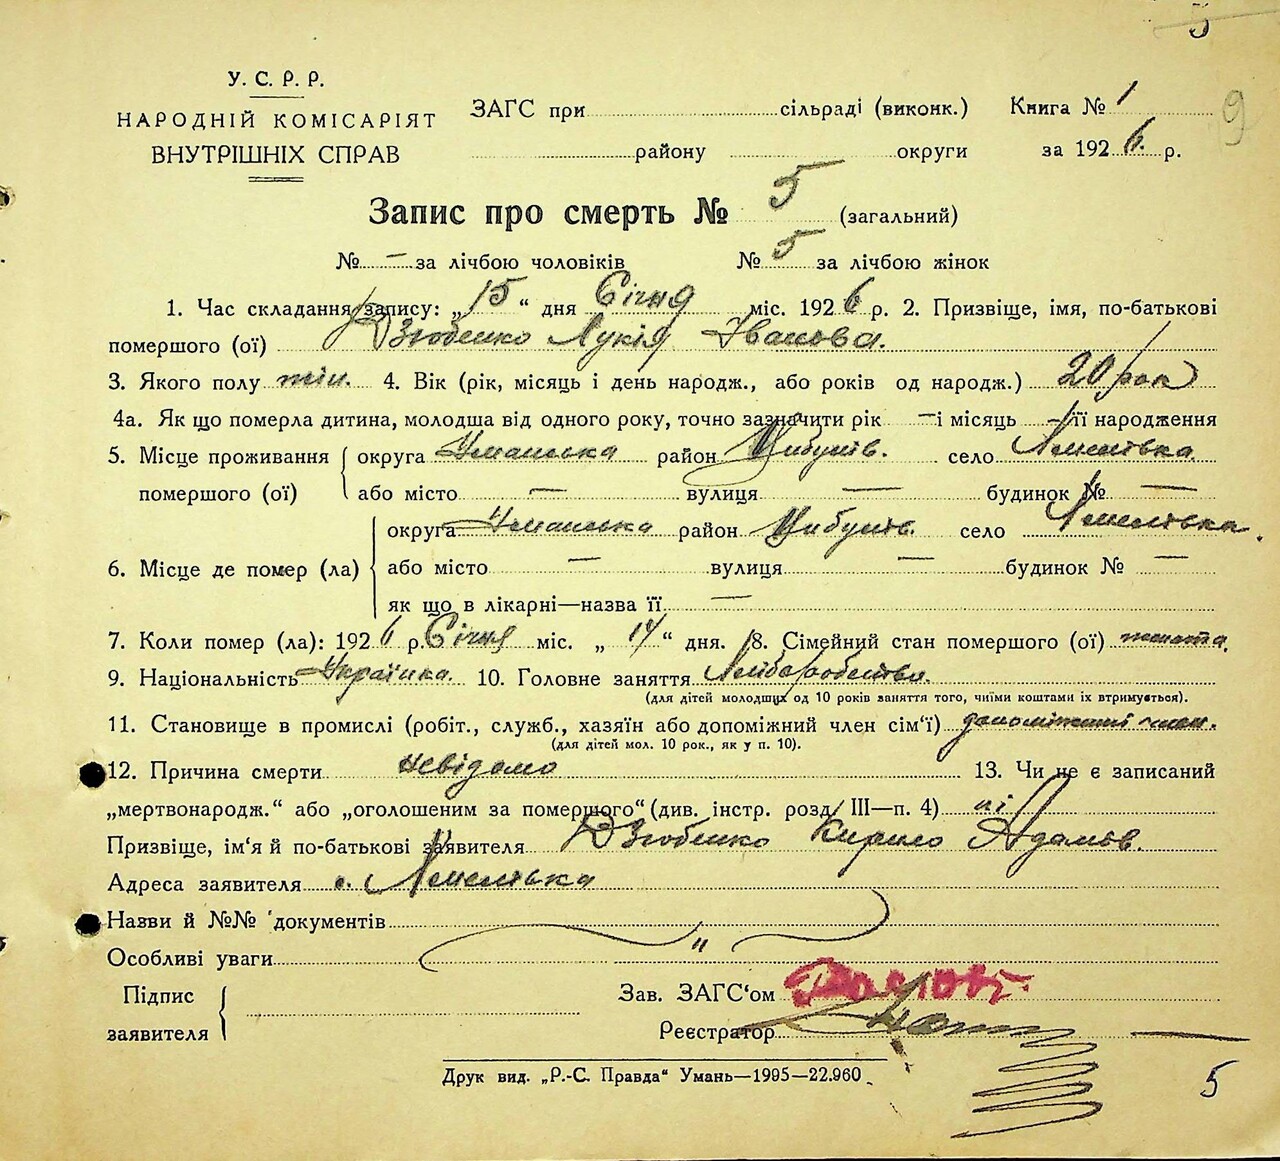 5
У. С. Р. Р.
НАРОДНІЙ КОМІСАРІЯТ
ВНУТРІШНІХ СПРАВ
ЗАГС при сільраді (виконк.) Книга № 1
9
району округи за 1926 р.
Запис про смерть № 5 (загальний)
№ — за лічбою чоловіків № 5 за лічбою жінок
1. Час складання запису: „15“ дня Січня міс. 1926 р. 2. Призвіще, імя, по-батькові
помершого (ої) Дзюбенко Лукія Іванова.
3. Якого полу жін. 4. Вік (рік, місяць і день народж., або років од народж.) 20 рок
4а. Як що померла дитина, молодша від одного року, точно зазначити рік — і місяць — її народження
5. Місце проживання округа Уманська район Цибулів. село
помершого (ої) або місто — вулиця — будинок № —
округа Уманська район Цибулів. село
6. Місце де помер (ла) або місто — вулиця — будинок № —
як що в лікарні—назва її —
7. Коли помер (ла): 1926 р. Січня міс. „14“ дня. 8. Сімейний стан помершого (ої) жоната.
9. Національність Українка. 10. Головне заняття
(для дітей молодщих од 10 років заняття того, чиїми коштами їх втримується).
11. Становище в промислі (робіт., служб., хазяїн або допоміжний член сім'ї) допоміжний член.
(для дітей мол. 10 рок., як у п. 10).
12. Причина смерти невідомо 13. Чи не є записаний
„мертвонародж.“ або „оголошеним за помершого“ (див. інстр. розд. III—п. 4) ні
Призвіще, ім'я й по-батькові заявителя Дзюбенко Кирило Адамов.
Адреса заявителя с.
Назви й №№ документів
Особливі уваги „
Підпис
заявителя
Зав. ЗАГС'ом
Реєстратор
Друк вид. „Р.-С. Правда“ Умань—1995—22.960
5